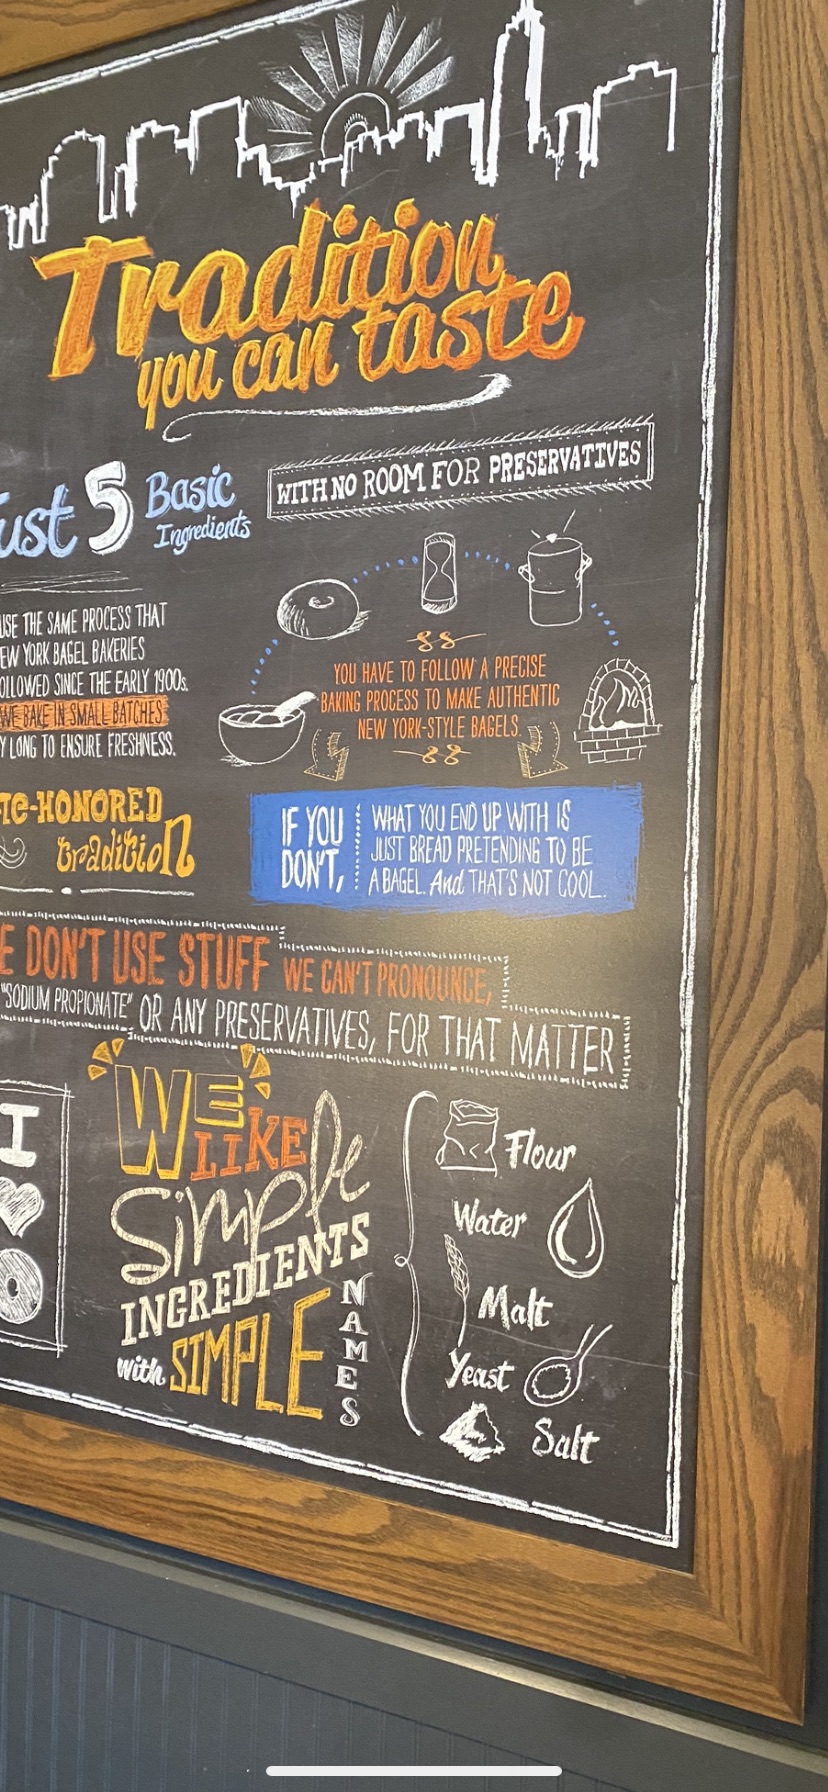 Tradition
you can taste
ust 5 Basic
Ingredients
WITH NO ROOM FOR PRESERVATIVES
USE THE SAME PROCESS THAT
EW YORK BAGEL BAKERIES
OLLOWED SINCE THE EARLY 1900s.
WE BAKE IN SMALL BATCHES
Y LONG TO ENSURE FRESHNESS.
YOU HAVE TO FOLLOW A PRECISE
BAKING PROCESS TO MAKE AUTHENTIC
NEW YORK-STYLE BAGELS.
-HONORED
tradition
IF YOU
DON'T,
WHAT YOU END UP WITH IS
JUST BREAD PRETENDING TO BE
A BAGEL. And THAT'S NOT COOL.
E DON'T USE STUFF WE CAN'T PRONOUNCE,
"SODIUM PROPIONATE" OR ANY PRESERVATIVES, FOR THAT MATTER
I
WE
LIKE
Simple
INGREDIENTS
with SIMPLE
NAMES
Flour
Water
Malt
Yeast
Salt